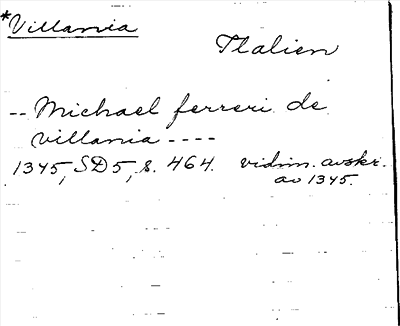 *Villania
Italien
-- Michael ferreri de
Villania ----
1345, SD5, s. 464. vidim. avskr.
av 1345.